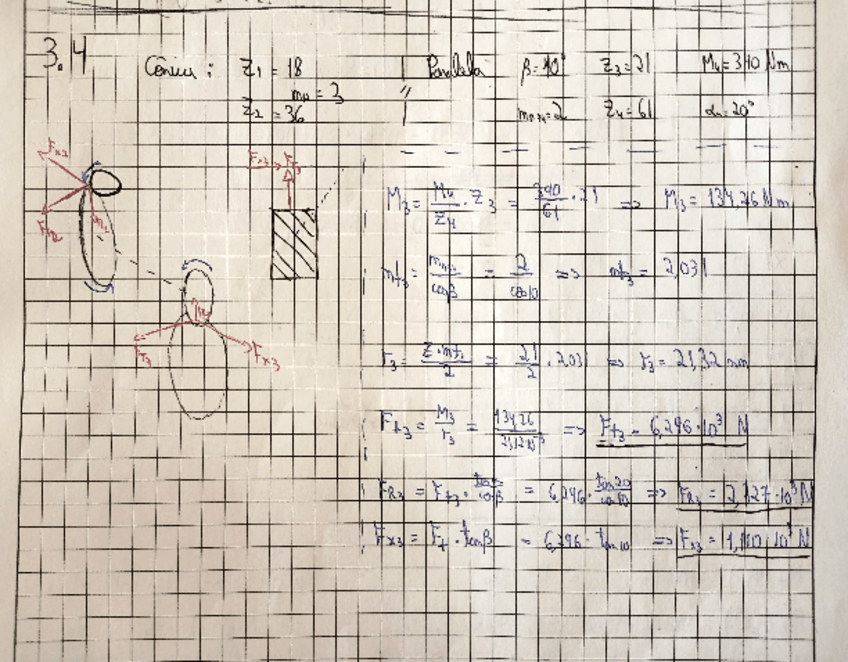 3.4
Cónico: Z1 = 18 Paralela β=10° Z3=21 M4=340 Nm
m = 3 "
Z2 = 36 Z4=61 αn=20°
Fx2 Fx3 Fr3
Fr2
M3 = M4/Z4 · Z3 = 340/61 · 21 => M3 = 134,26 Nm
mt3 = /cosβ = 2/cos10 => mt3 = 2,031
r3 = Z·mt3/2 = 21/2 · 2,031 => r3 = 21,32 mm
Fx3
Ft3 = M3/r3 = => Ft3 = 6,296·10³ N
FR3 = Ft3 · /cosβ = 6,296 · tan20/cos10 => FR3 = 2,327·10³ N
Fx3 = Ft · tanβ = 6,296 · tan10 => Fx3 = 1,110·10³ N